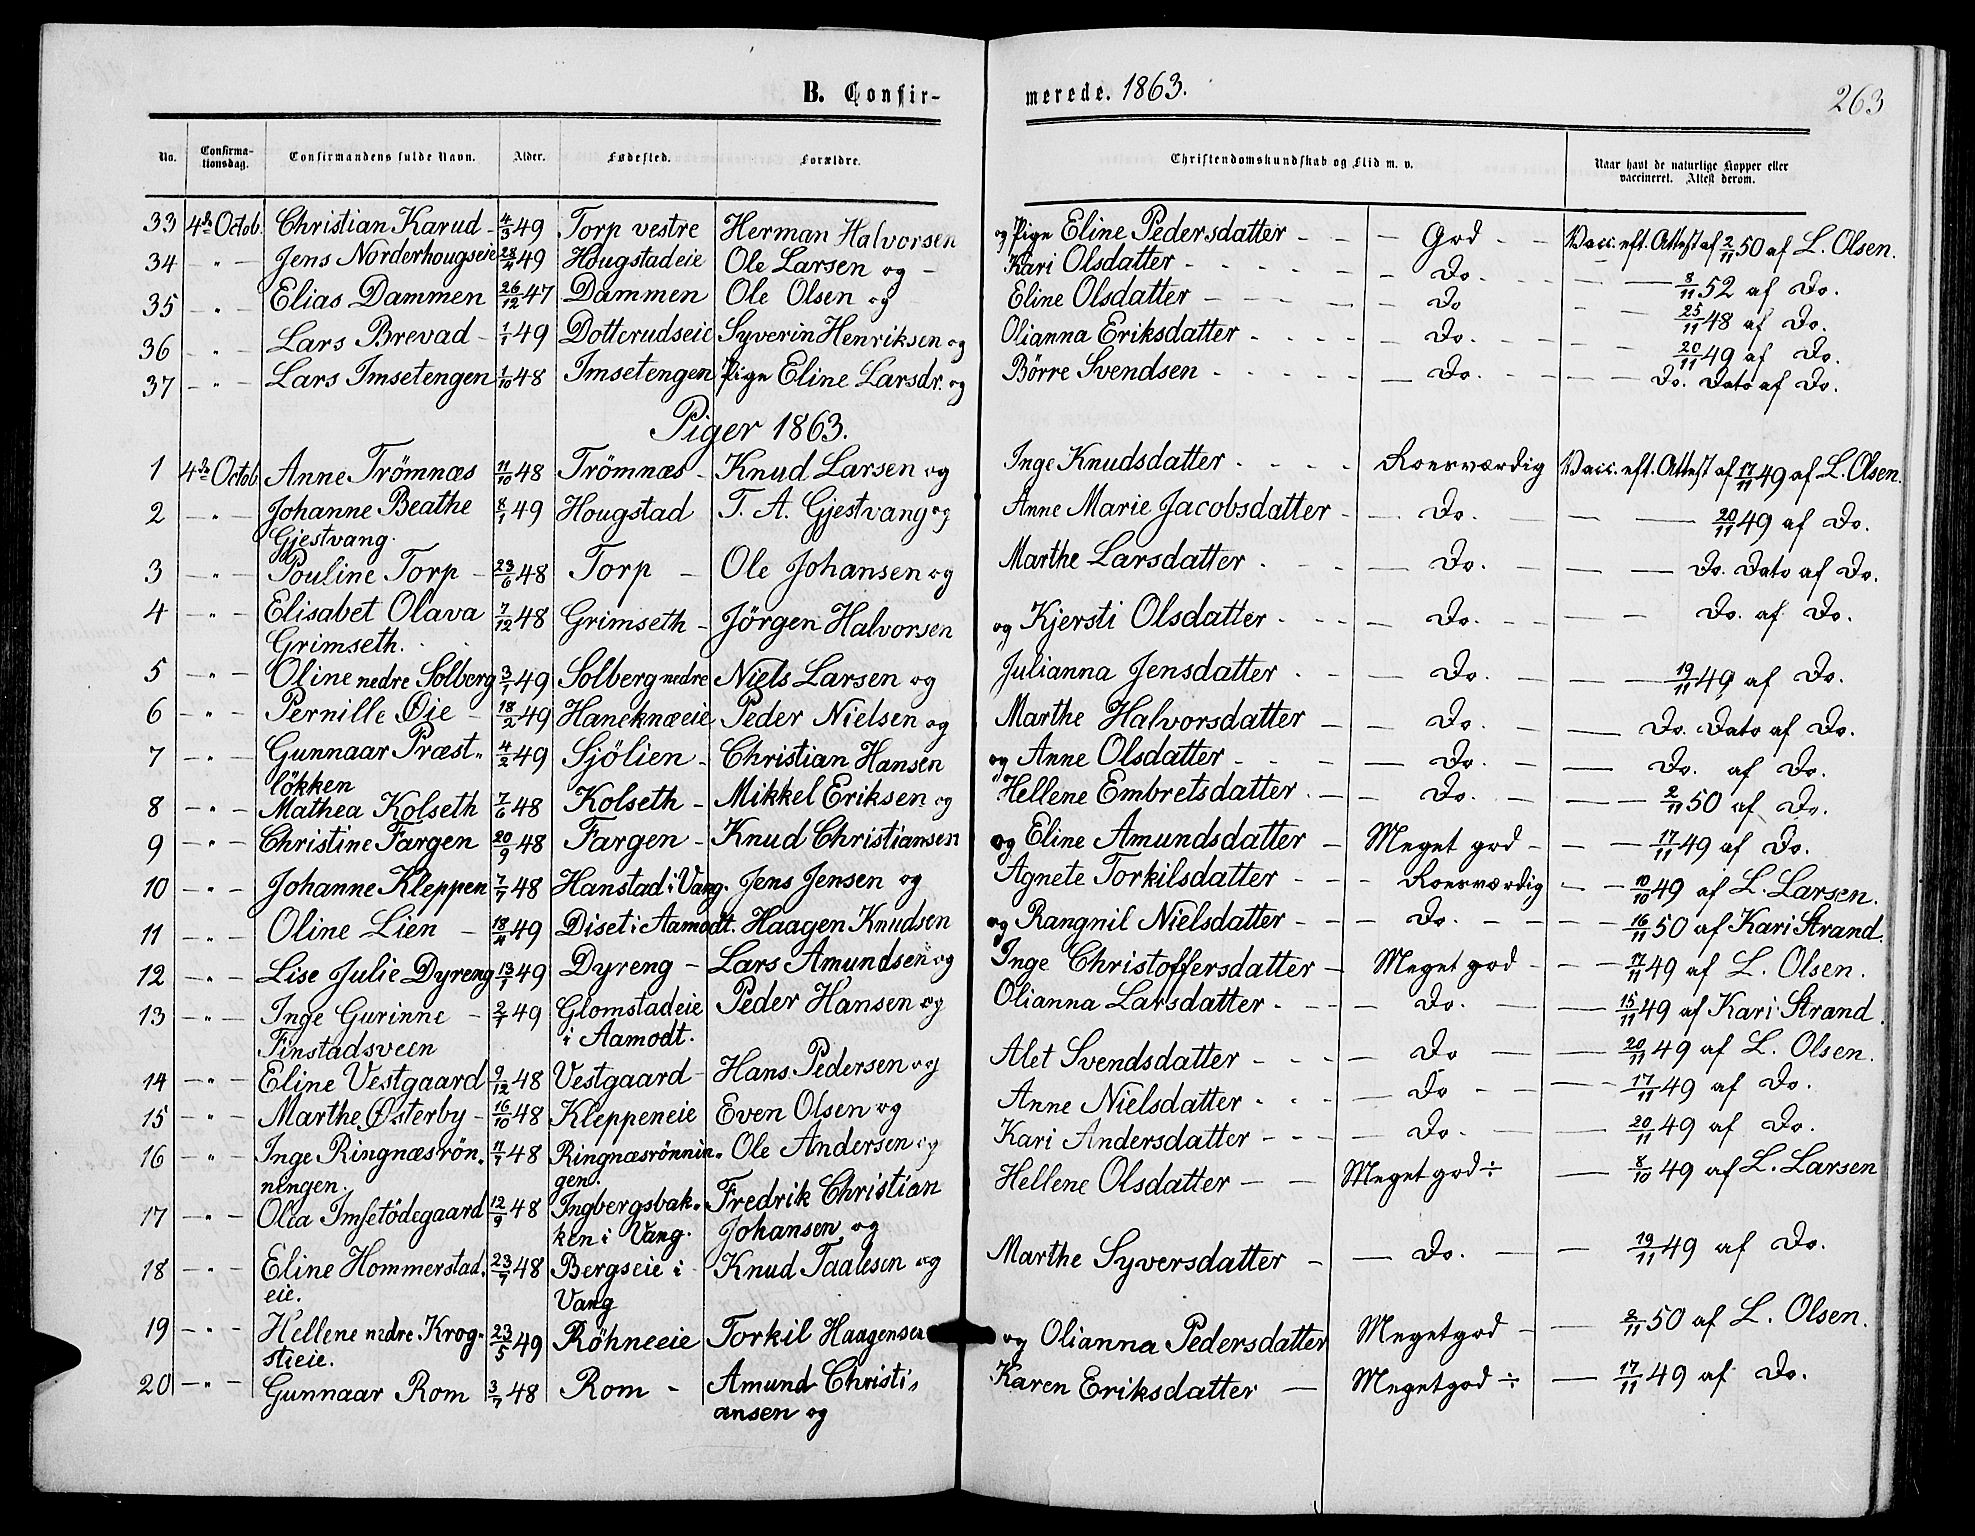 B. Confir-
merede. 1863.
263
No. Confirma-tionsdag. Confirmandens fulde Navn. Alder. Fødested. Forældre. Christendomskundskab og Flid m. v. Naar havt de naturlige Kopper eller vaccineret. Attest derom.
33 4de Octob. Christian Karud 4/3 49 Torp vestre Herman Halvorsen og Pige Eline Pedersdatter - - God - - Vacc. eft. Attest af 2/11 50 af L. Olsen.
34 - " - Jens Norderhougseie 28/4 49 Hougstadeie Ole Larsen og - Kari Olsdatter - - Do. - - 8/11 52 af Do.
35 - " - Elias Dammen 26/12 47 Dammen Ole Olsen og Eline Olsdatter - - Do - - 25/11 48 af Do.
36 - " - Lars Brevad - 1/1 49 Dotterudseie Syverin Henriksen og Olianna Eriksdatter - - Do. - - 20/11 49 af Do.
37 - " - Lars Imsetengen 1/10 48 Imsetengen Pige Eline Larsdr. og Börre Svendsen - - Do. - - Do. Dato af Do.
Piger 1863.
1 4de Octob. Anne Trömnæs 11/10 48 Trömnæs - Knud Larsen og Inge Knudsdatter - - Roesværdig Vacc. eft. Attest af 17/11 49 af L. Olsen.
2 - " - Johanne Beathe 8/1 49 Hougstad T. A. Gjestvang og Anne Marie Jacobsdatter - - Do. - - 20/11 49 af Do.
Gjestvang.
3 - " - Pouline Torp - 23/6 48 Torp - Ole Johansen og Marthe Larsdatter - - Do. - - Do. Dato af Do.
4 - " - Elisabet Olava 7/12 48 Grimseth - Jörgen Halvorsen og Kjersti Olsdatter - - Do. - - Do. af Do.
Grimseth.
5 - " - Oline nedre Solberg 3/1 49 Solberg nedre Niels Larsen og Julianna Jensdatter - - Do. - - 19/11 49 af Do.
6 - " - Pernille Øie - 18/2 49 Haneknæeie Peder Nielsen og Marthe Halvorsdatter - - Do. - - Do. Dato af Do.
7 - " - Gunnaar Præst- 4/2 49 Sjölien - Christian Hansen og Anne Olsdatter - - Do. - - Do. af Do.
lökken
8 - " - Mathea Kolseth 7/6 48 Kolseth - Mikkel Eriksen og Hellene Embretsdatter - - Do. - - 2/11 50 af Do.
9 - " - Christine Fargen 20/9 48 Fargen - Knud Christiansen og Eline Amundsdatter - Meget god - - 17/11 49 af Do.
10 - " - Johanne Kleppen 7/7 48 Hanstad i Vang. Jens Jensen og Agnete Torkilsdatter - - Roesværdig - - 10/10 49 af L. Larsen.
11 - " - Oline Lien - 18/4 49 Diset i Aamodt. Haagen Knudsen og Rangnil Nielsdatter - - Do. - - 16/11 50 af Kari Strand.
12 - " - Lise Julie Dyreng 13/1 49 Dyreng - Lars Amundsen og Inge Christoffersdatter - Meget god - - 17/11 49 af L. Olsen.
13 - " - Inge Gurinne - 2/1 49 Glomstadeie Peder Hansen og Olianna Larsdatter - - Do. - - 15/11 49 af Kari Strand.
Finstadsveen i Aamodt.
14 - " - Eline Vestgaard 9/12 48 Vestgaard Hans Pedersen og Alet Svendsdatter - - Do - - 20/11 49 af L. Olsen.
15 - " - Marthe Østerby - 16/10 48 Kleppeneie Even Olsen og Anne Nielsdatter - - Do - - 17/11 49 af Do.
16 - " - Inge Ringnæsrön- 11/7 48 Ringnæsrönnin- Ole Andersen og Kari Andersdatter - - Do. - 20/11 49 af Do.
ningen. gen.
17 - " - Olea Imsetödegaard 12/9 48 Ingbergsbak- Fredrik Christian Hellene Olsdatter - - Meget god ÷ - 8/10 49 af L. Larsen
ken i Vang. Johansen og
18 - " - Eline Hommerstad- 23/7 48 Bergseie i Knud Taalesen og Marthe Syversdatter - - Do. - - 19/11 49 af Do.
eie. Vang
19 - " - Hellene nedre Krog- 23/5 49 Röhneeie Torkil Haagensen og Olianna Pedersdatter Meget god - - 2/11 50 af L. Olsen.
stieie.
20 - " - Gunnaar Rom 3/7 48 Rom - Amund Christi- Karen Eriksdatter - Meget god ÷ - 17/11 49 af Do.
ansen og